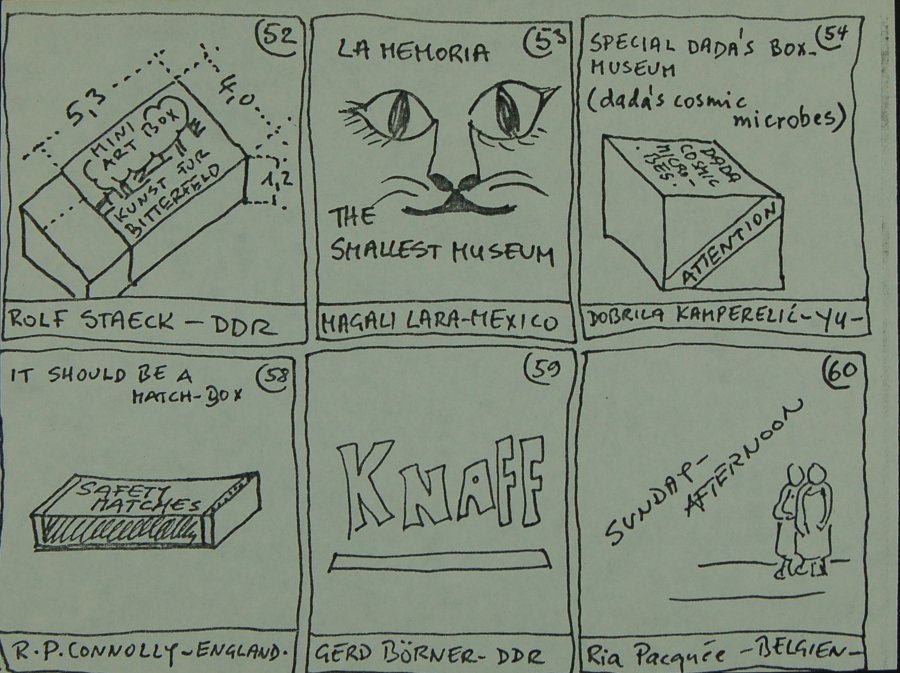 52
5,3
4,0
1,2
MINI
ART BOX
KUNST FÜR
BITTERFELD
ROLF STAECK – DDR
LA MEMORIA
53
THE
SMALLEST MUSEUM
MAGALI LARA-MEXICO
SPECIAL DADA'S BOX-
54
MUSEUM
(dada's cosmic
microbes)
DADA
COSMIC
MICRO-
BES.
ATTENTION
DOBRICA KAMPERELIĆ-YU-
IT SHOULD BE A
58
MATCH-BOX
SAFETY
MATCHES
R.P.CONNOLLY-ENGLAND.
59
KNAFF
GERD BÖRNER- DDR
60
SUNDAY-
AFTERNOON
Ria Pacquée -BELGIEN-